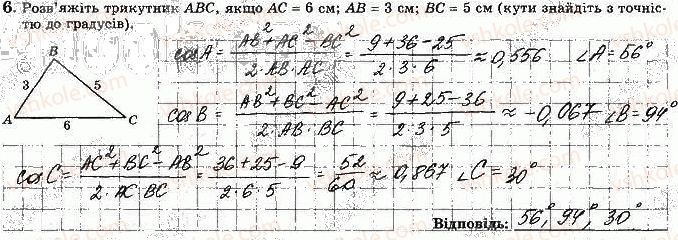 6. Розв'яжіть трикутник ABC, якщо AC = 6 см; AB = 3 см; BC = 5 см (кути знайдіть з точніс-
тю до градусів).
B
3 5
A 6 C
cos A = (AB² + AC² − BC²)/(2·AB·AC) = (9+36−25)/(2·3·6) ≈ 0,556 ∠A = 56°
cos B = (AB² + BC² − AC²)/(2·AB·BC) = (9+25−36)/(2·3·5) ≈ −0,067 ∠B = 94°
cos C = (AC² + BC² − AB²)/(2·AC·BC) = (36+25−9)/(2·6·5) = 52/60 ≈ 0,867 ∠C = 30°
Відповідь: 56°, 94°, 30°